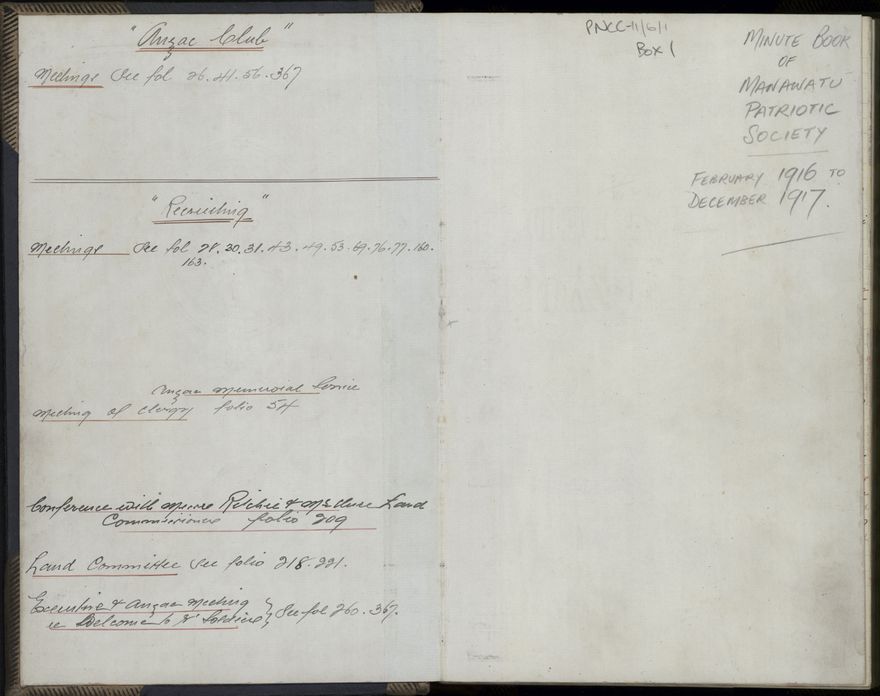 "Anzac Club"
Meetings See fol 26. 41. 56. 367
"Recruiting"
Meetings See fol 28. 30. 31. 43. 49. 53. 69. 76. 77. 160.
163.
Anzac Memorial Service
Meeting of Clergy folio 54
Conference with Messrs Ritchie & McClure Land
Commissioners folio 209
Land Committee See folio 218. 221.
Executive & Anzac Meeting } See fol 260. 367.
re Welcome to Rt Soldiers
PNCC-11/6/1
Box 1
MINUTE BOOK
OF
MANAWATU
PATRIOTIC
SOCIETY
FEBRUARY 1916 TO
DECEMBER 1917.